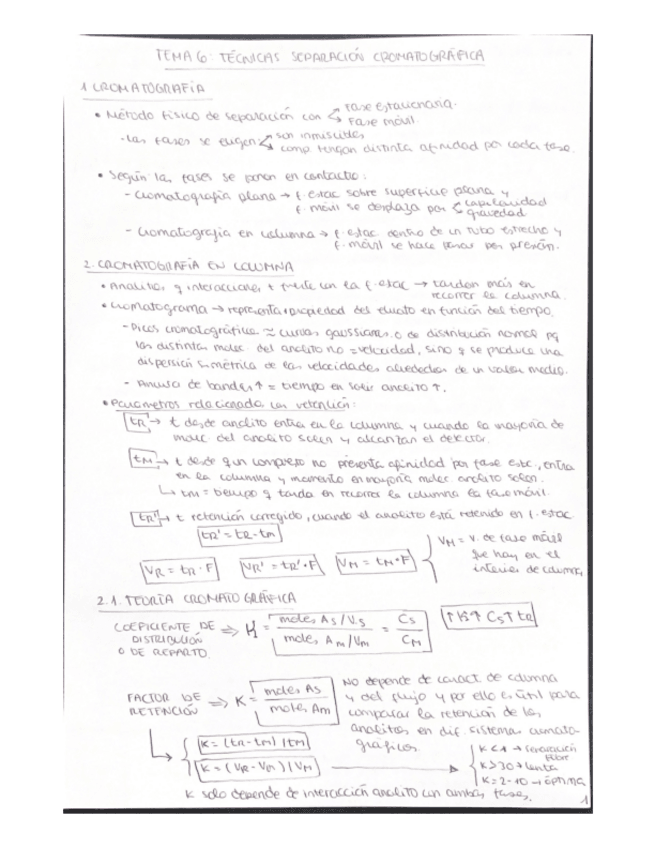 TEMA 6: TÉCNICAS SEPARACIÓN CROMATOGRÁFICA
1. CROMATOGRAFÍA
• Método físico de separación con < Fase estacionaria.
Fase móvil.
- Las fases se eligen < son inmiscibles
como tengan distinta afinidad por cada fase.
• Según las fases se ponen en contacto:
- Cromatografía plana → f. estac sobre superficie plana y
f. móvil se desplaza por < capilaridad
gravedad
- Cromatografía en columna → f. estac dentro de un tubo estrecho y
f. móvil se hace pasar por presión.
2. CROMATOGRAFÍA EN COLUMNA
• Analitos q interaccionen + fuerte con la f. estac → tardan más en
recorrer la columna.
• Cromatograma → representa propiedad del eluato en función del tiempo.
- Picos cromatográficos ≈ curvas gaussianas o de distribución normal pq
las distintas molec. del analito no = velocidad, sino q se produce una
dispersión simétrica de las velocidades alrededor de un valor medio.
- Anchura de bandas ↑ = tiempo en salir analito ↑.
• Parámetros relacionados con retención:
tR → t desde analito entra en la columna y cuando la mayoría de
molec del analito salen y alcanzan el detector.
tM → t desde q un compuesto no presenta afinidad por fase estc., entra
en la columna y momento en mayoría molec. analito salen.
↳ tM = tiempo q tarda en recorrer la columna la fase móvil.
tR' → t retención corregido, cuando el analito está retenido en f. estac
tR' = tR - tM
VR = tR · F VR' = tR' · F VM = tM · F
VM = V. de fase móvil
que hay en el
interior de columna
2.1. TEORÍA CROMATOGRÁFICA
COEFICIENTE DE
DISTRIBUCIÓN
O DE REPARTO
⇒ K = moles As / Vs
moles Am / Vm
= Cs
CM
↑K ⇒ ↑ Cs ↑ tR
FACTOR DE
RETENCIÓN
⇒ K = moles As
moles Am
NO depende de caract. de columna
y del flujo y por ello es útil para
comparar la retención de los
analitos en dif. sistemas cromato
gráficos.
K = (tR - tM) / tM
K = (VR - VM) / VM
K < 1 → separación
pobre
K > 30 → lenta
K = 2 - 10 → óptima
K solo depende de interacción analito con ambas fases.
1